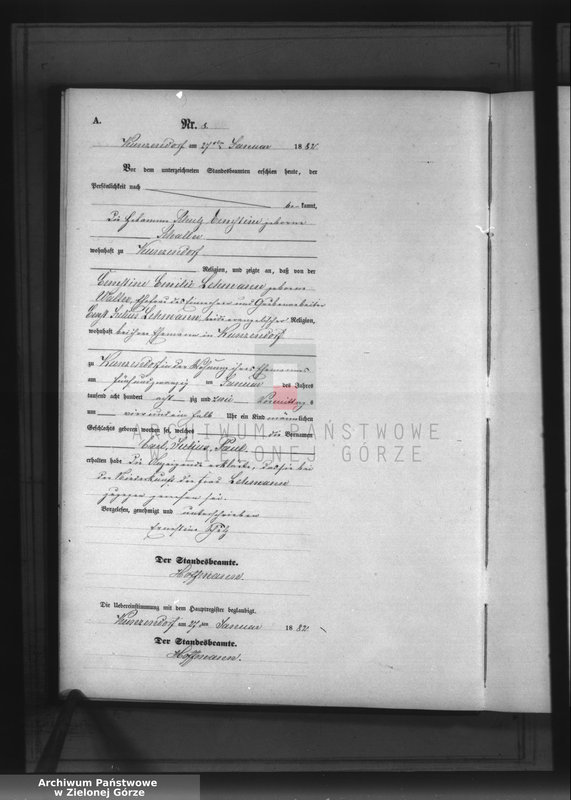 A.
Nr. 8
Kunzendorf am 27ten Januar 1882
Vor dem unterzeichneten Standesbeamten erschien heute, der
Persönlichkeit nach
be- kannt,
Die Hebamme Ernestine geborene
wohnhaft zu Kunzendorf
Religion, und zeigte an, daß von der
Ernestine Emilie Lehmann geborene
Walter, Ehefrau des und Grubenarbeiter
Ernst Julius Lehmann, beide evangelischer Religion,
wohnhaft bei ihrem Ehemann in Kunzendorf
zu Kunzendorf in der Wohnung ihres Ehemannes
am fünfundzwanzig ten Januar des Jahres
tausend acht hundert acht zig und zwei Vormittags
um vier und ein halb Uhr ein Kind männlichen
Geschlechts geboren worden sei, welches die Vornamen
Karl Julius Paul
erhalten habe Die Anzeigende erklärte, daß sie bei
der Niederkunft der Frau Lehmann
zugegen gewesen sei.
Vorgelesen, genehmigt und unterschrieben
Ernestine
Der Standesbeamte.
Hoffmann.
Die Uebereinstimmung mit dem Hauptregister beglaubigt.
Kunzendorf am 27ten Januar 1882
Der Standesbeamte.
Hoffmann.
ARCHIWUM PAŃSTWOWE
W ZIELONEJ GÓRZE
Archiwum Państwowe
w Zielonej Górze